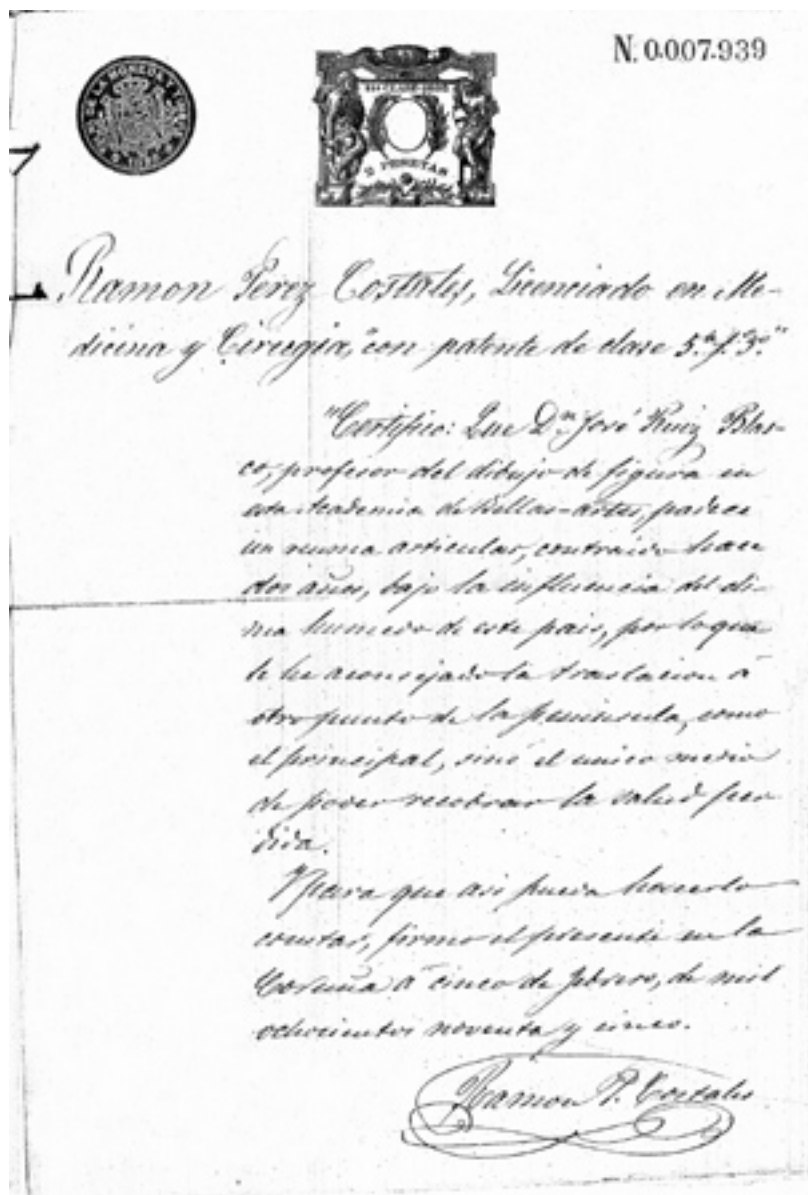 N. 0.007.939
2 PESETAS
Ramon Perez Costales, Licenciado en Me-
dicina y Cirugia, con patente de clase 5.ª
"Certifico: Que D.n José Ruiz Blas-
co, profesor del dibujo de figura en
esta Academia de Bellas-artes, padece
un reuma articular, contraido hace
dos años, bajo la influencia del cli-
ma humedo de este pais, por lo que
le he aconsejado la traslacion á
otro punto de la peninsula, como
el principal, sinó el unico medio
de poder recobrar la salud per
dida.
Y para que asi pueda hacerlo
constar, firmo el presente en la
Coruña á cinco de febrero, de mil
ochocientos noventa y cinco.
Ramon P. Costales